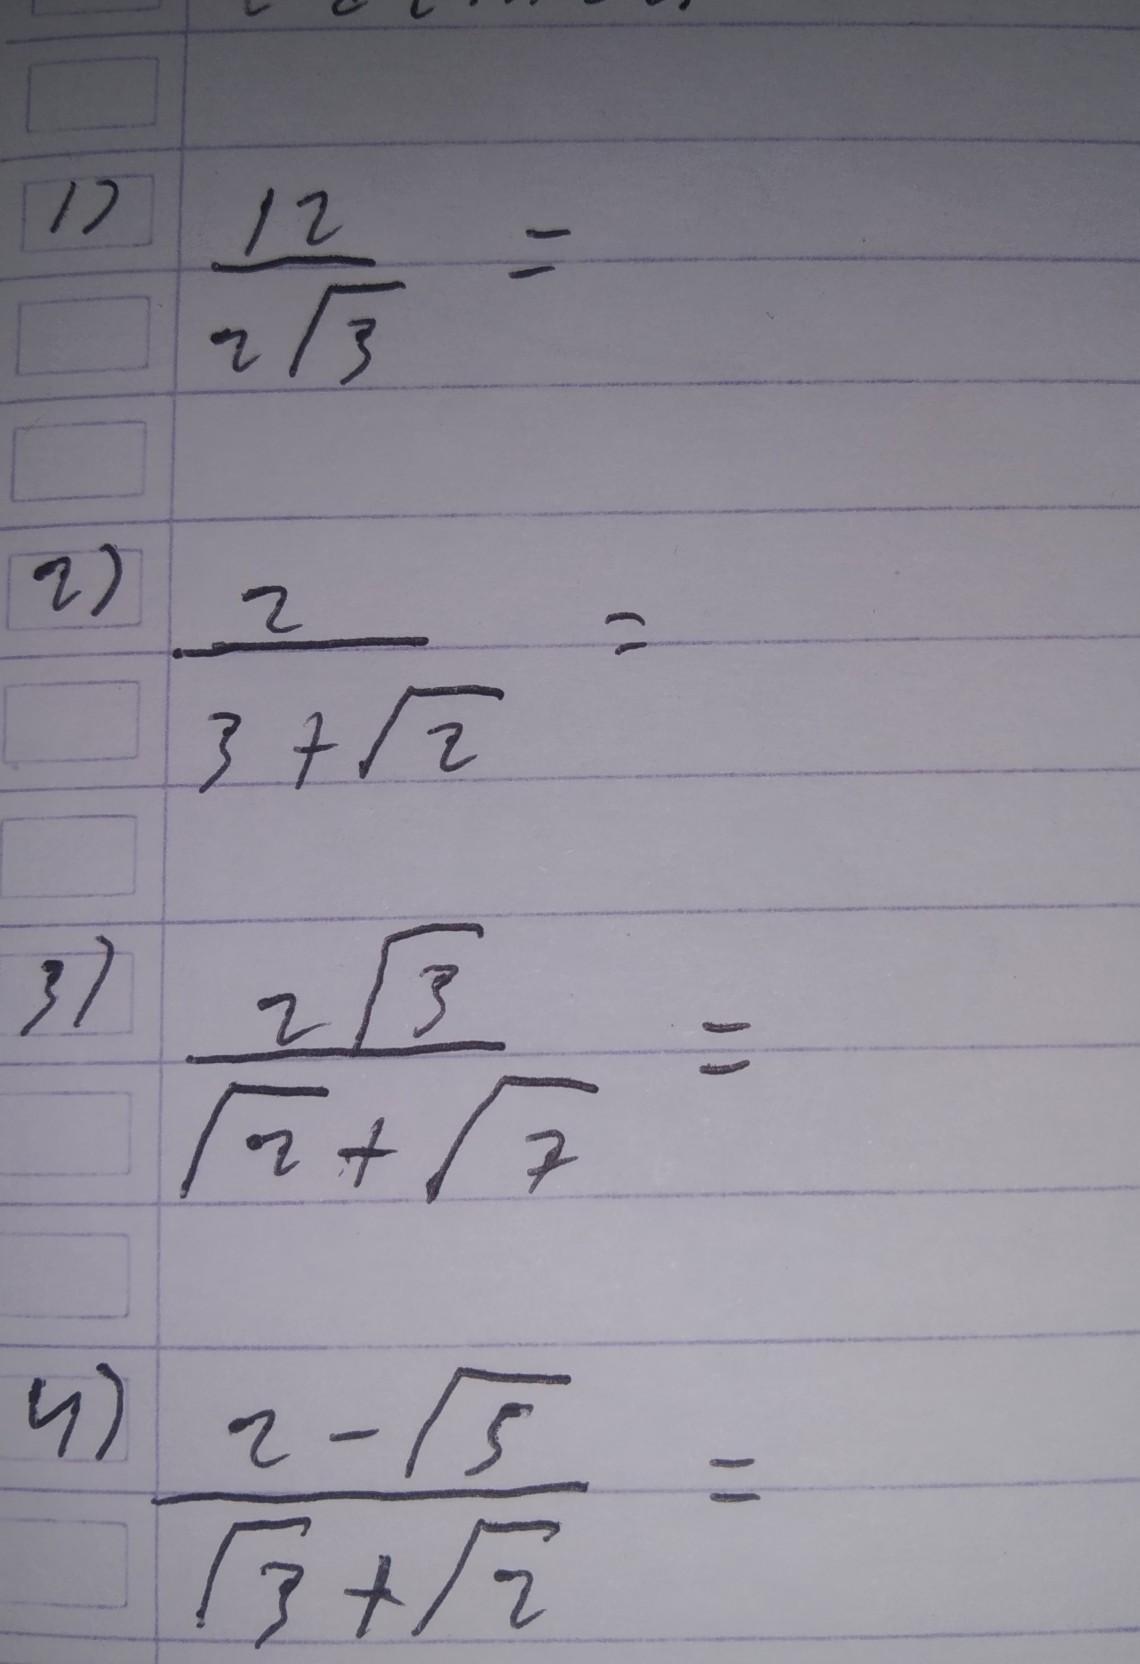 1) 12 / 2√3 =
2) 2 / 3+√2 =
3) 2√3 / √2+√7 =
4) 2-√5 / √3+√2 =